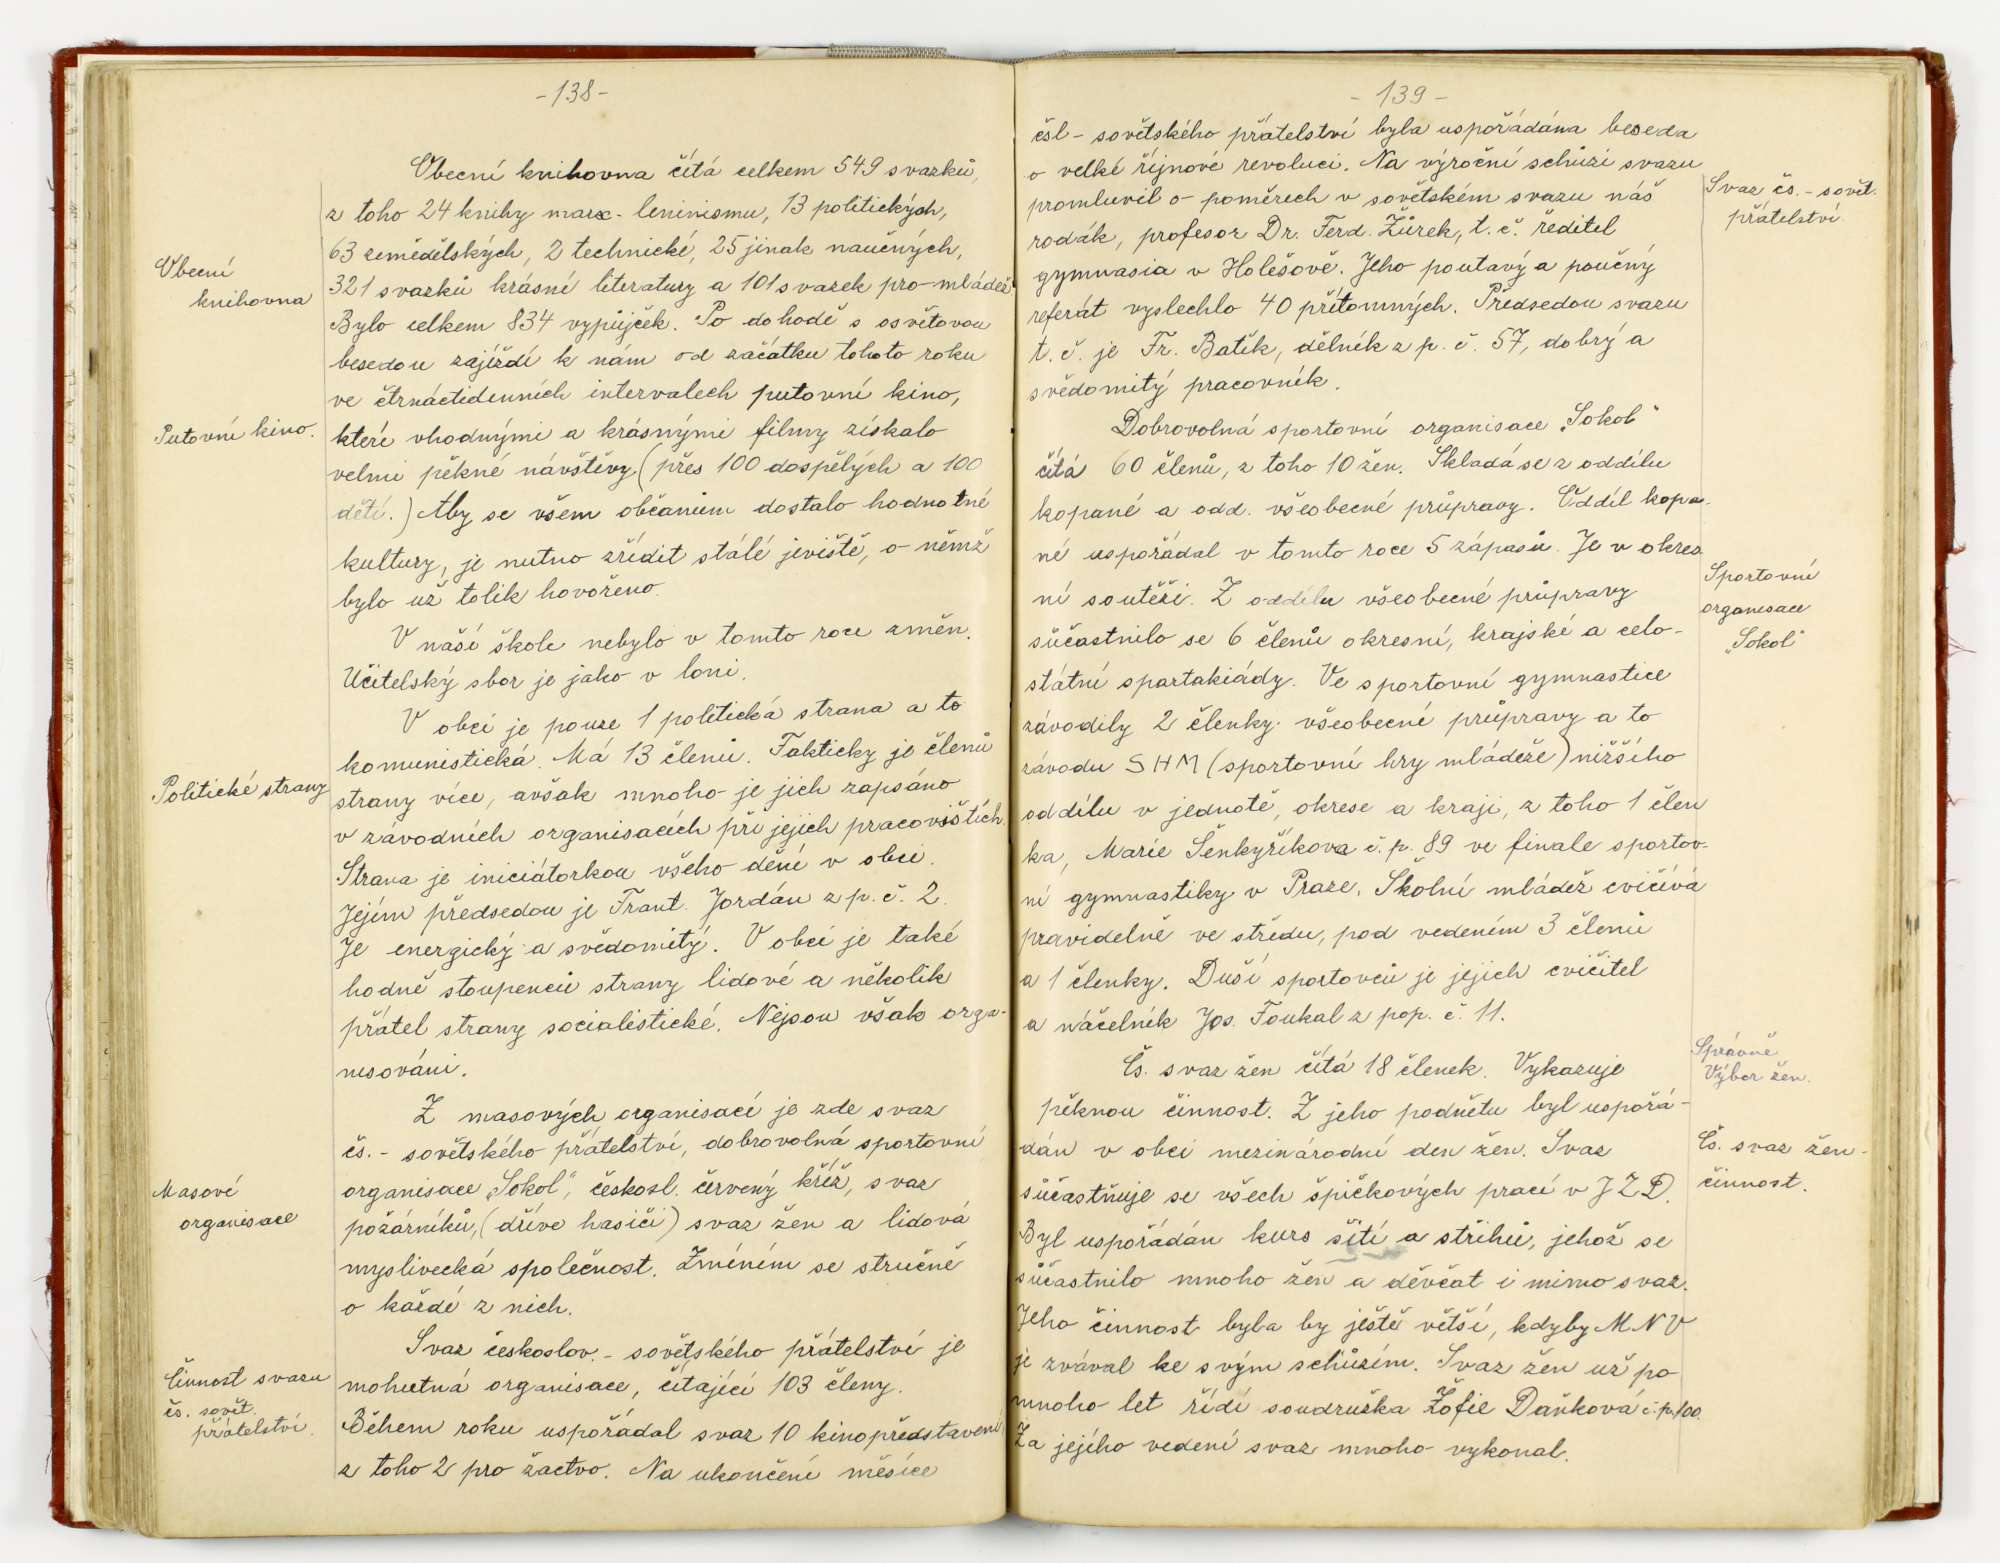 -138-
Obecní knihovna čítá celkem 549 svazků,
z toho 24 knihy marx-leninismu, 13 politických,
63 zemědělských, 2 technické, 25 jinak naučných,
Obecní
knihovna
321 svazků krásné literatury a 101 svazek pro mládež
Bylo celkem 834 vypůjček. Po dohodě s osvětovou
besedou zajíždí k nám od začátku tohoto roku
ve čtrnáctidenních intervalech putovní kino,
Putovní kino.
které vhodnými a krásnými filmy získalo
velmi pěkné návštěvy (přes 100 dospělých a 100
dětí.) Aby se všem občanům dostalo hodnotné
kultury, je nutno zřídit stálé jeviště, o němž
bylo už tolik hovořeno.
V naší škole nebylo v tomto roce změn.
Učitelský sbor je jako v loni.
V obci je pouze 1 politická strana a to
komunistická. Má 13 členů. Fakticky je členů
Politické strany
strany více, avšak mnoho je jich zapsáno
v závodních organisacích při jejich pracovištích.
Strana je iniciátorkou všeho dění v obci.
Jejím předsedou je Frant. Jordán z p. č. 2.
Je energický a svědomitý. V obci je také
hodně stoupenců strany lidové a několik
přátel strany socialistické. Nejsou však orga-
nisováni.
Z masových organisací je zde svaz
čs. - sovětského přátelství, dobrovolná sportovní
Masové
organisace
organisace „Sokol“, českosl. červený kříž, svaz
požárníků, (dříve hasiči) svaz žen a lidová
myslivecká společnost. Zmíním se stručně
o každé z nich.
Svaz českoslov. - sovětského přátelství je
Činnost svazu
čs. sovět.
přátelství.
mohutná organisace, čítající 103 členy.
Během roku uspořádal svaz 10 kinopředstavení
z toho 2 pro žactvo. Na ukončení měsíce
- 139 -
čsl - sovětského přátelství byla uspořádána beseda
o velké říjnové revoluci. Na výroční schůzi svazu
Svaz čs. - sovět.
přátelství.
promluvil o poměrech v sovětském svazu náš
rodák, profesor Dr. Ferd. Žůrek, t. č. ředitel
gymnasia v Holešově. Jeho poutavý a poučný
referát vyslechlo 40 přítomných. Předsedou svazu
t. č. je Fr. Batík, dělník z p. č. 57, dobrý a
svědomitý pracovník.
Dobrovolná sportovní organisace „Sokol“
čítá 60 členů, z toho 10 žen. Skládá se z oddílu
kopané a odd. všeobecné průpravy. Oddíl kopa-
né uspořádal v tomto roce 5 zápasů. Je v okres
Sportovní
organisace
„Sokol“
ní soutěži. Z oddílu všeobecné průpravy
súčastnilo se 6 členů okresní, krajské a celo-
státní spartakiády. Ve sportovní gymnastice
závodily 2 členky všeobecné průpravy a to
závodu SHM (sportovní hry mládeže) nižšího
oddílu v jednotě, okrese a kraji, z toho 1 člen
ka, Marie Šenkyříkova č. p. 89 ve finale sportov-
ní gymnastiky v Praze. Školní mládež cvičívá
pravidelně ve středu, pod vedením 3 členů
a 1 členky. Duší sportovců je jejich cvičitel
a náčelník Jos. Foukal z pop. č. 11.
Správně
Výbor žen.
Čs. svaz žen čítá 18 členek. Vykazuje
pěknou činnost. Z jeho podnětu byl uspořá-
dán v obci mezinárodní den žen. Svaz
Čs. svaz žen -
činnost.
súčastňuje se všech špičkových prací v JZD.
Byl uspořádán kurs šití a střihů, jehož se
súčastnilo mnoho žen a děvčat i mimo svaz.
Jeho činnost byla by ještě větší, kdyby MNV
je zvával ke svým schůzím. Svaz žen už po
mnoho let řídí soudružka Žofie Daňková č. p. 100.
Za jejího vedení svaz mnoho vykonal.